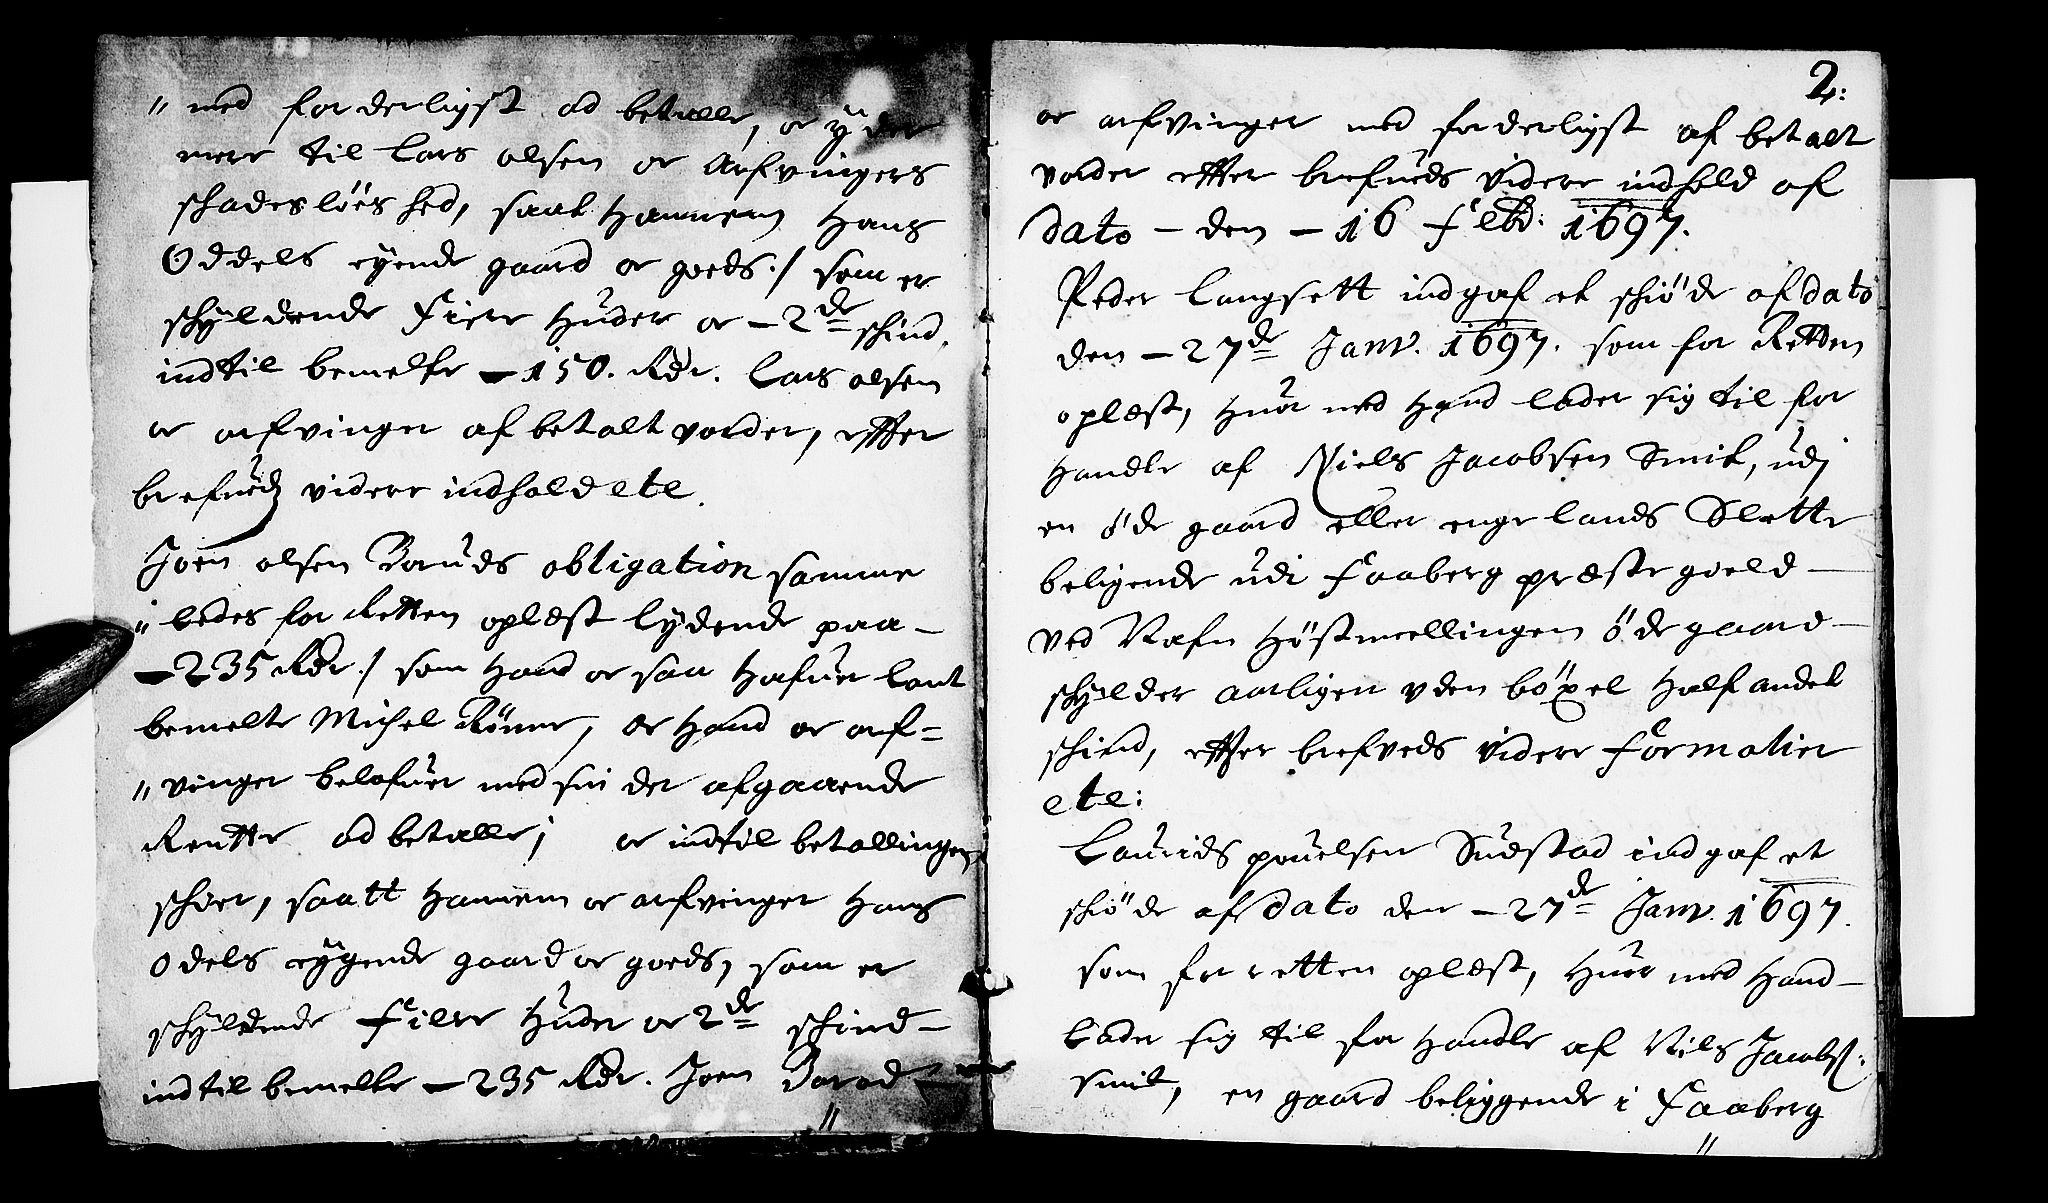 " med forderligst ad betalle, oc ÿder
mere til Lars olsen oc Arfvingers
schadeslöes hed, saat Hannem Hans
Oddels eyende gaard oc goeds ./ som er
schÿldende Fiere Huder oc – 2de schind,
indtil bemelte – 150. Rdr. Lars olsen
oc arfvinger afbetalt vorder, effter
brefueds videre indhold etc.
Joen olsen Boruds obligation samme
" ledes for Retten oplæst lydende paa –
– 235 Rdr ./ som Hand oc saa Hafuer lant
bemelte Michel Rönne, oc Hand oc arf=
" vinger belofuer med sin der afgaaende
Rentte ad betalle; oc indtil betallingen
scheer, saatt Hannem oc arfvinger Hans
Odels eygende gaard oc goeds, som er
schÿldende Fiere Huder oc 2de schind –
indtil bemelte – 235 Rdr. Joen Borud –
"
2:
oc arfvinger med forderligst afbetalt
vorder effter brefueds videre indhold af
dato – den – 16 Febr: 1697.
Peder Langsett indgaf et schiöde af dato
den – 27de Janv. 1697. som for Retten
oplæst, Huor med Hand lader sig til for
Handle af Niels Jacobsen Smit, udj
en öde gaard eller enge lands Slette
beligende udi Faaberg præste gield –
ved Nafn Höstmellingen öde gaard –
schÿlder aarligen uden böxel Half andet
schind, effter brefveds videre Formalier
etc:
Laurids pouelsen Sudstad indgaf et
schiöde af dato den – 27de Janv. 1697.
som for retten oplæst, Huor med Hand –
Lader sig til for Handle af Niels Jacobs:
smit, en gaard beliggende i Faaberg
"